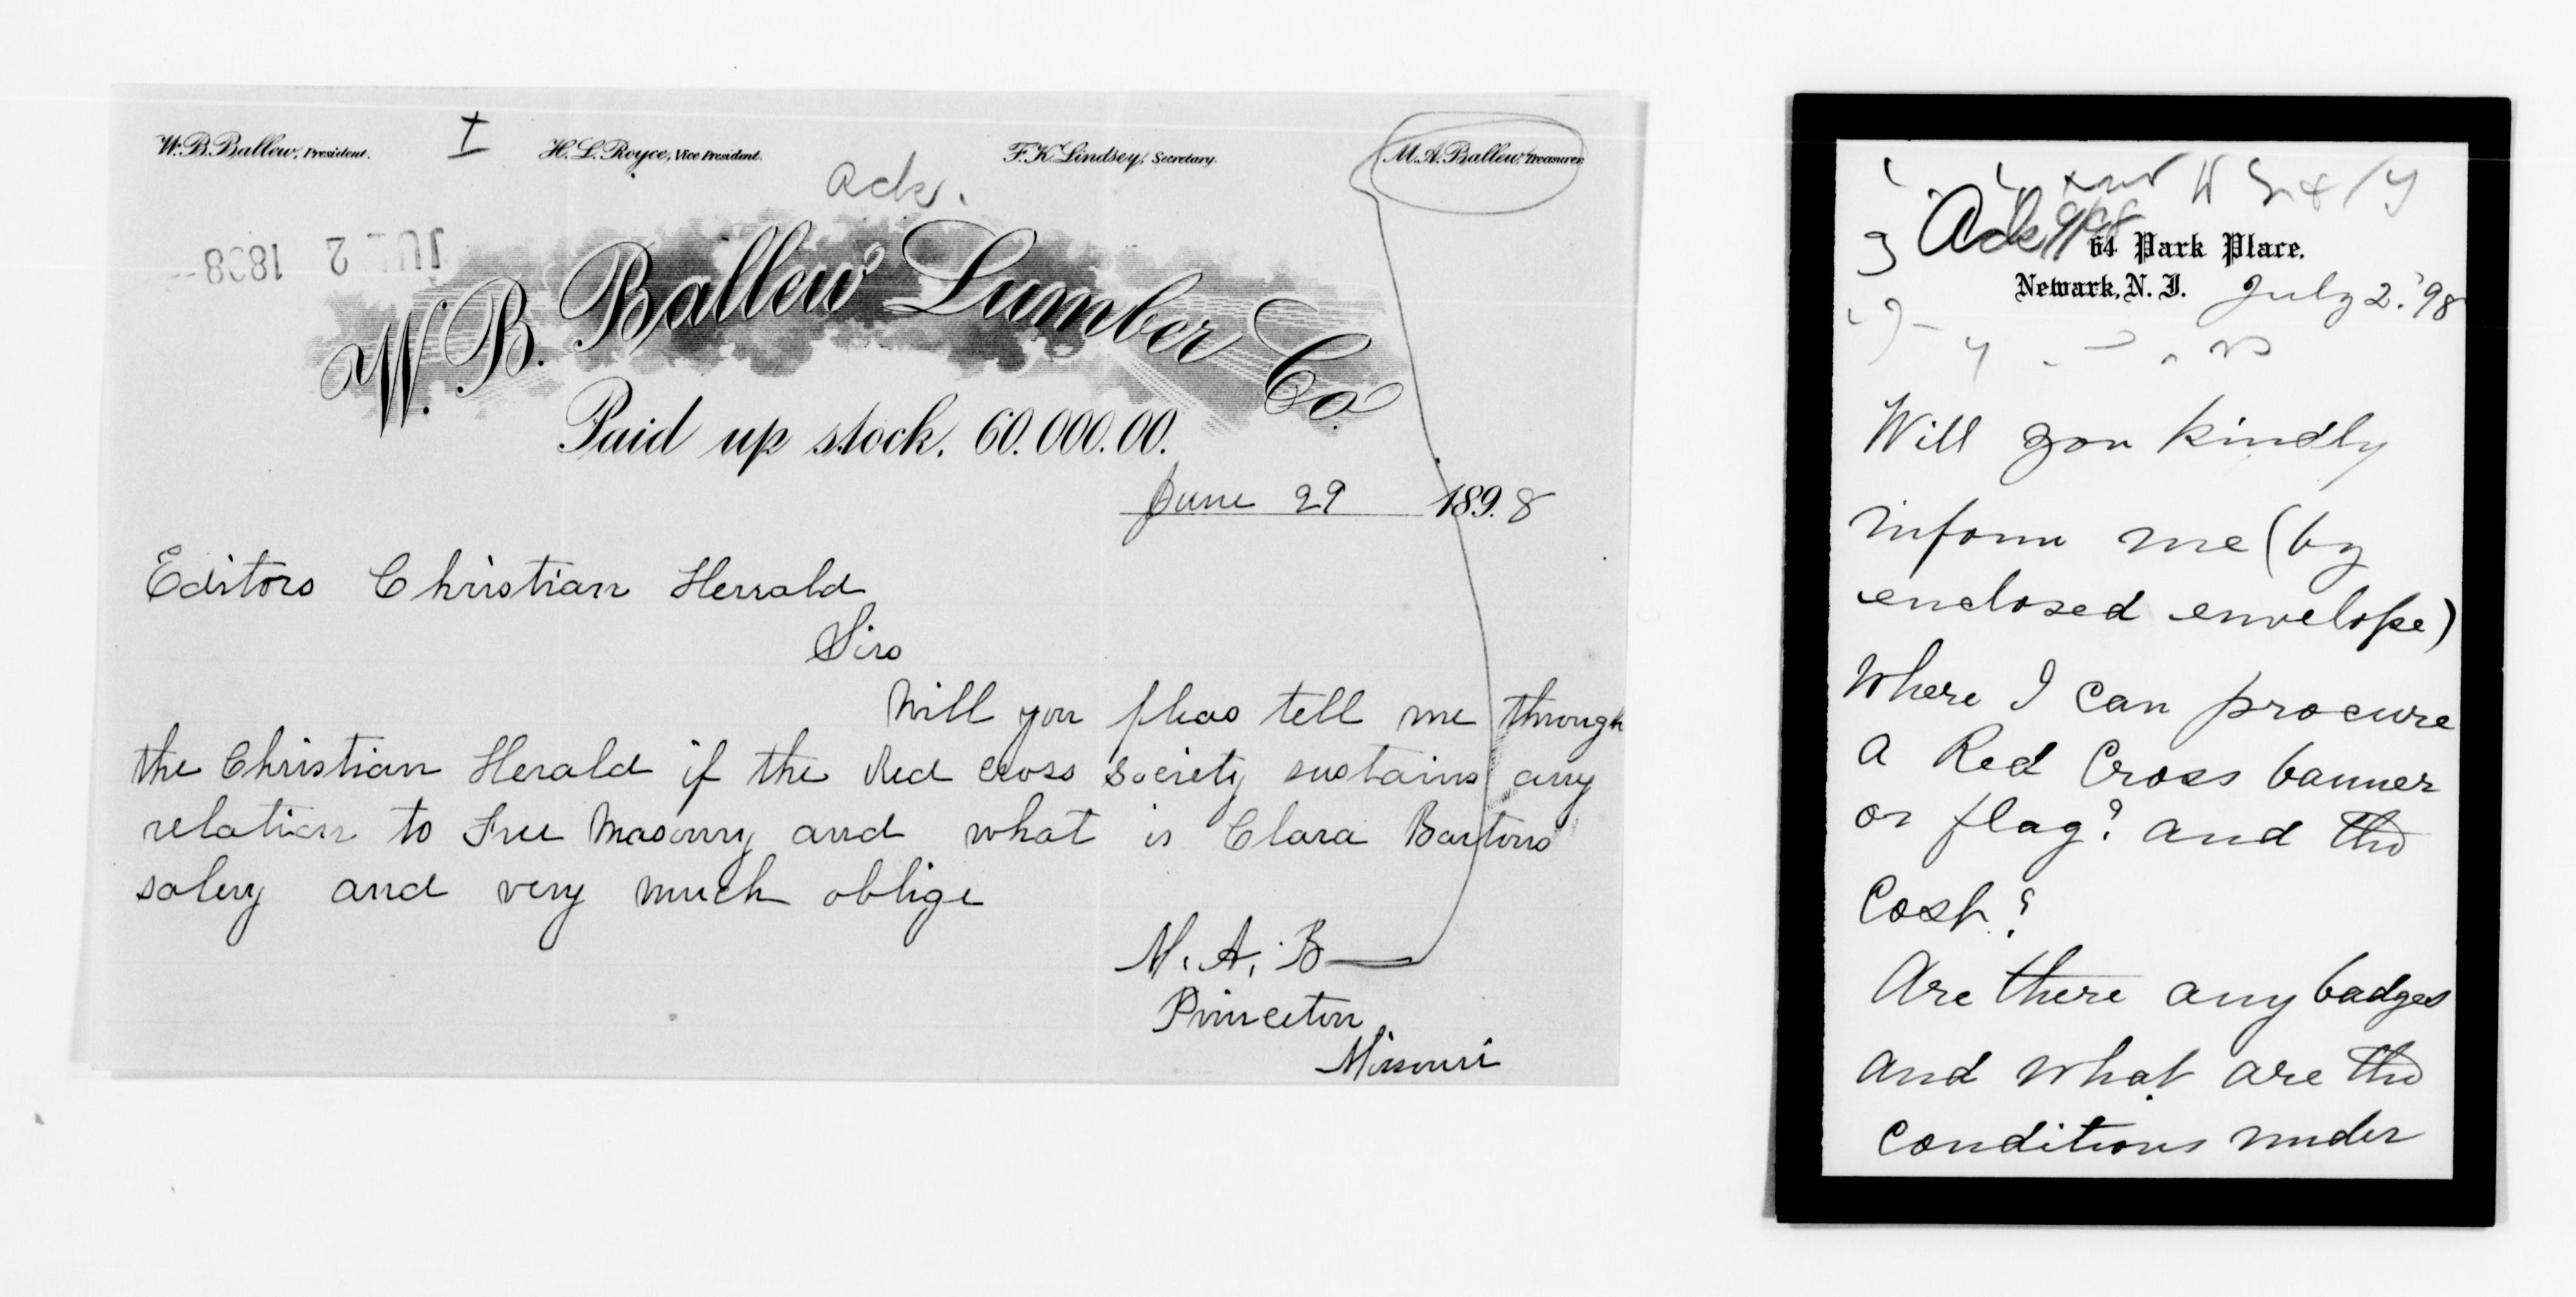 W. B. Ballew, President.
I
H. L. Royce, Vice President.
F. K. Lindsey, Secretary.
M. A. Ballew, Treasurer.
Ack.
W. B. Ballew Lumber Co.
Paid up stock. 60.000.00.
June 29 1898
Editors Christian Herrald
Sirs
Will you pleas tell me through
the Christian Herald if the Red cross society sustains any
relation to Free Masonry and what is Clara Bartons
salery and very much oblige
M. A. B
Princeton
Missouri
Ack
64 Park Place.
Newark, N. J. July 2. '98
Will you kindly
inform me (by
enclosed envelope)
where I can procure
a Red Cross banner
or flag? and the
Cost?
Are there any badges
and what are the
conditions under